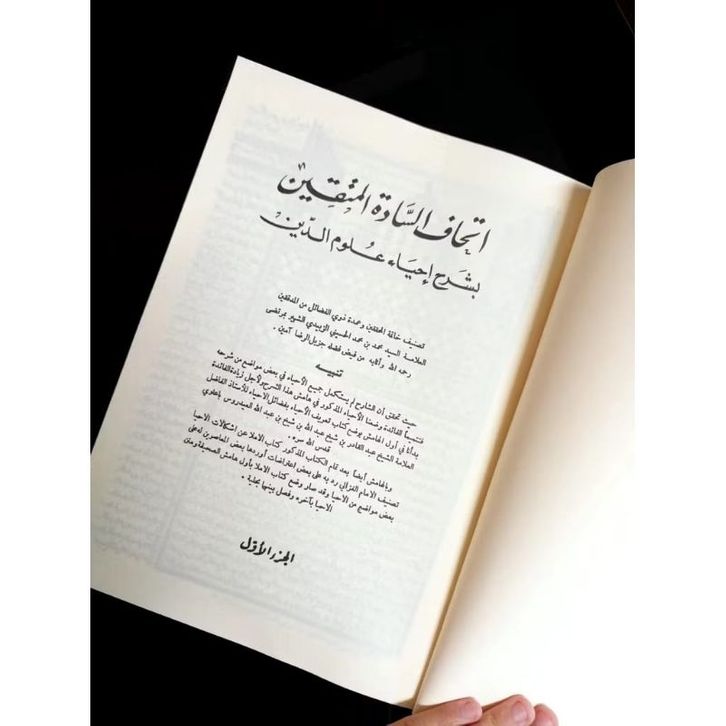 اتحاف السادة المتقين
بشرح إحياء علوم الدين
تصنيف خاتمة المحققين وعمدة ذوي الفضائل من المدققين
العلامة السيد محمد بن محمد الحسيني الزبيدي الشهير بمرتضى
رحمه الله وأثابه من فيض فضله جزيل الرضا آمين .
تنبيه
حيث تحقق أن الشارح لم يستكمل جميع الأحياء في بعض مواضع من شرحه
فتتميماً للفائدة وضعنا الأحياء المذكور في هامش هذا الشرح ولأجل زيادة الفائدة
بدأنا في أول الهامش بوضع كتاب تعريف الأحياء بفضائل الأحياء للأستاذ الفاضل
العلامة الشيخ عبد القادر بن شيخ عبد الله بن شيخ بن عبد الله العيدروس باعلوي
قدس الله سره .
وبالهامش أيضاً بعد تمام الكتاب المذكور كتاب الاملا عن اشكالات الاحيا
تصنيف الامام الغزالي رد به على بعض اعتراضات أوردها بعض المعاصرين له على
بعض مواضع من الاحيا وقد صار وضع كتاب الاملا بأول هامش الصحيفة ومتن
الاحيا بآخره وفصل بينهما بحلية .
الجزء الأول